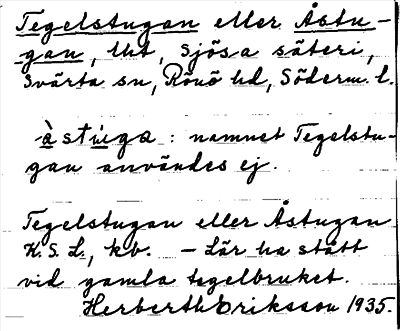 Tegelstugan eller Åstu-
gan, lht, Sjösa säteri,
Svärta sn, Rönö hd, Söderm. l.
àstúga : namnet Tegelstu-
gan användes ej.
Tegelstugan eller Åstugan
K. S. L., kb. – Lär ha stått
vid gamla tegelbruket.
Herberth Eriksson 1935.